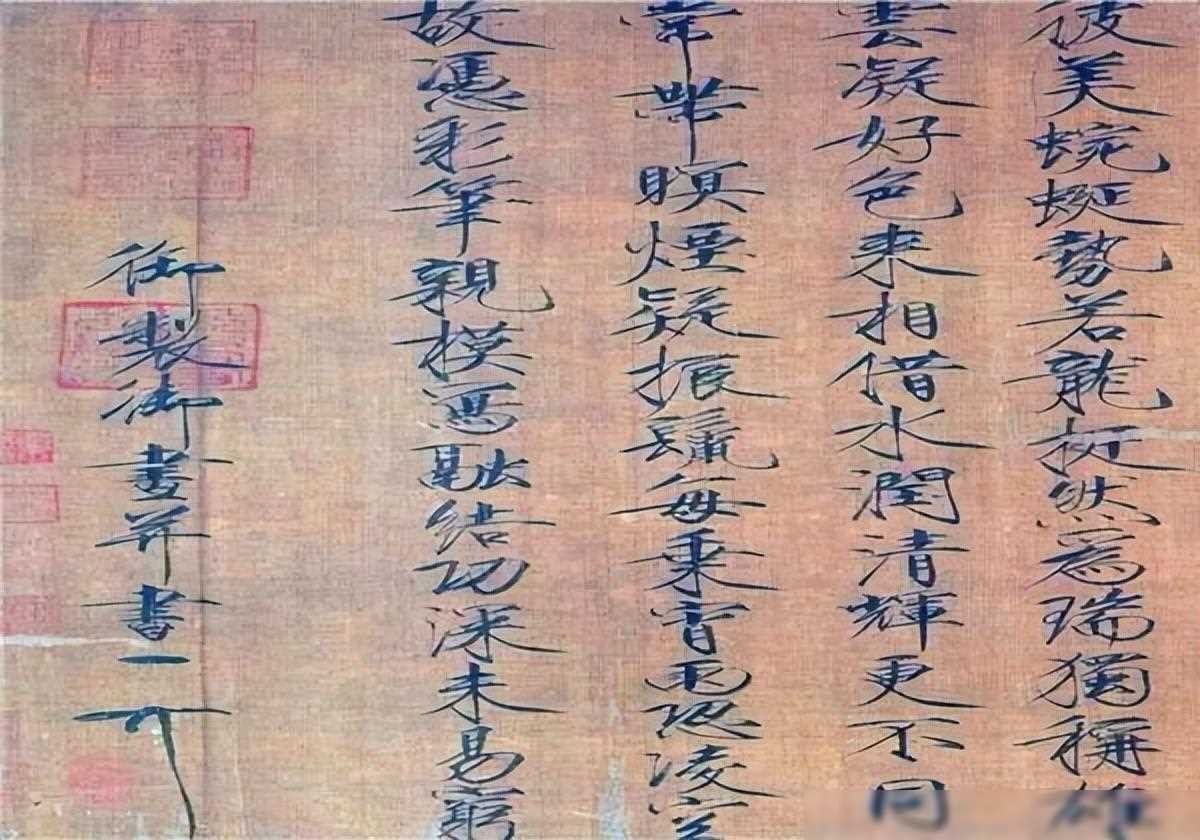 彼美蜿蜒勢若龍挺然爲瑞獨稱雄
雲凝好色来相借水潤清輝更不同
常帶暝煙疑振鬣每乗宵雨恐凌空
故憑彩筆親模寫融結功深未易窮
御製御畫并書